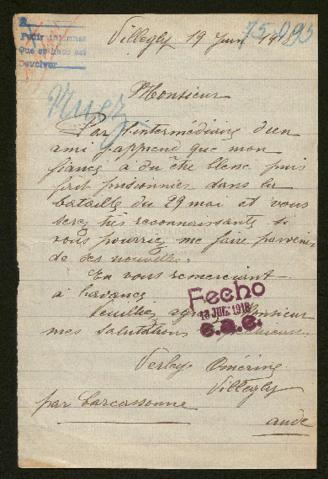 Pedir informes
Que se haga esl
Devolver
Villegly 19 Juin 19
75.095
Monsieur
Par l'intermédiaire d'un
ami j'apprend que mon
fiancé à du être blessé puis
fait prisonnier dans la
bataille du 29 mai et vous
serez très reconnaissante si
vous pourriez me faire parvenir
de ses nouvelles.
En vous remerciant
à l'avance
Veuillez agréer Monsieur
mes salutations
Fecho
13 JUL. 1918
Verley
Villegly
par Carcassonne
aude